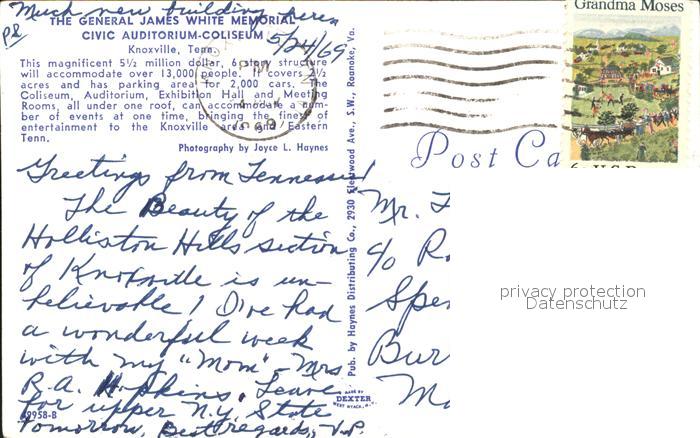 Much new building here
P.S.
5/24/69
THE GENERAL JAMES WHITE MEMORIAL
CIVIC AUDITORIUM-COLISEUM
Knoxville, Tenn.
This magnificent 5½ million dollar, 6 story structure
will accommodate over 13,000 people. It covers 2½
acres and has parking area for 2,000 cars. The
Coliseum, Auditorium, Exhibition Hall and Meeting
Rooms, all under one roof, can accommodate a num-
ber of events at one time, bringing the finest of
entertainment to the Knoxville area and Eastern
Tenn.
Photography by Joyce L. Haynes
Greetings from Tennessee!
The Beauty of the
Holliston Hills section
of Knoxville is un-
believable! I've had
a wonderful week
with my "Mom" - Mrs.
R.A. Hopkins. Leave
for upper N.Y. State
tomorrow. Best regards, V.P.
49958-B
Pub. by Haynes Distributing Co., 2930 Fleetwood Ave., S.W., Roanoke, Va.
MADE BY
DEXTER
WEST NYACK, N.Y.
PM
1969
Grandma Moses
6c U.S.P
Post Ca
Mr.
c/o R
Spe
Bur
M
privacy protection
Datenschutz